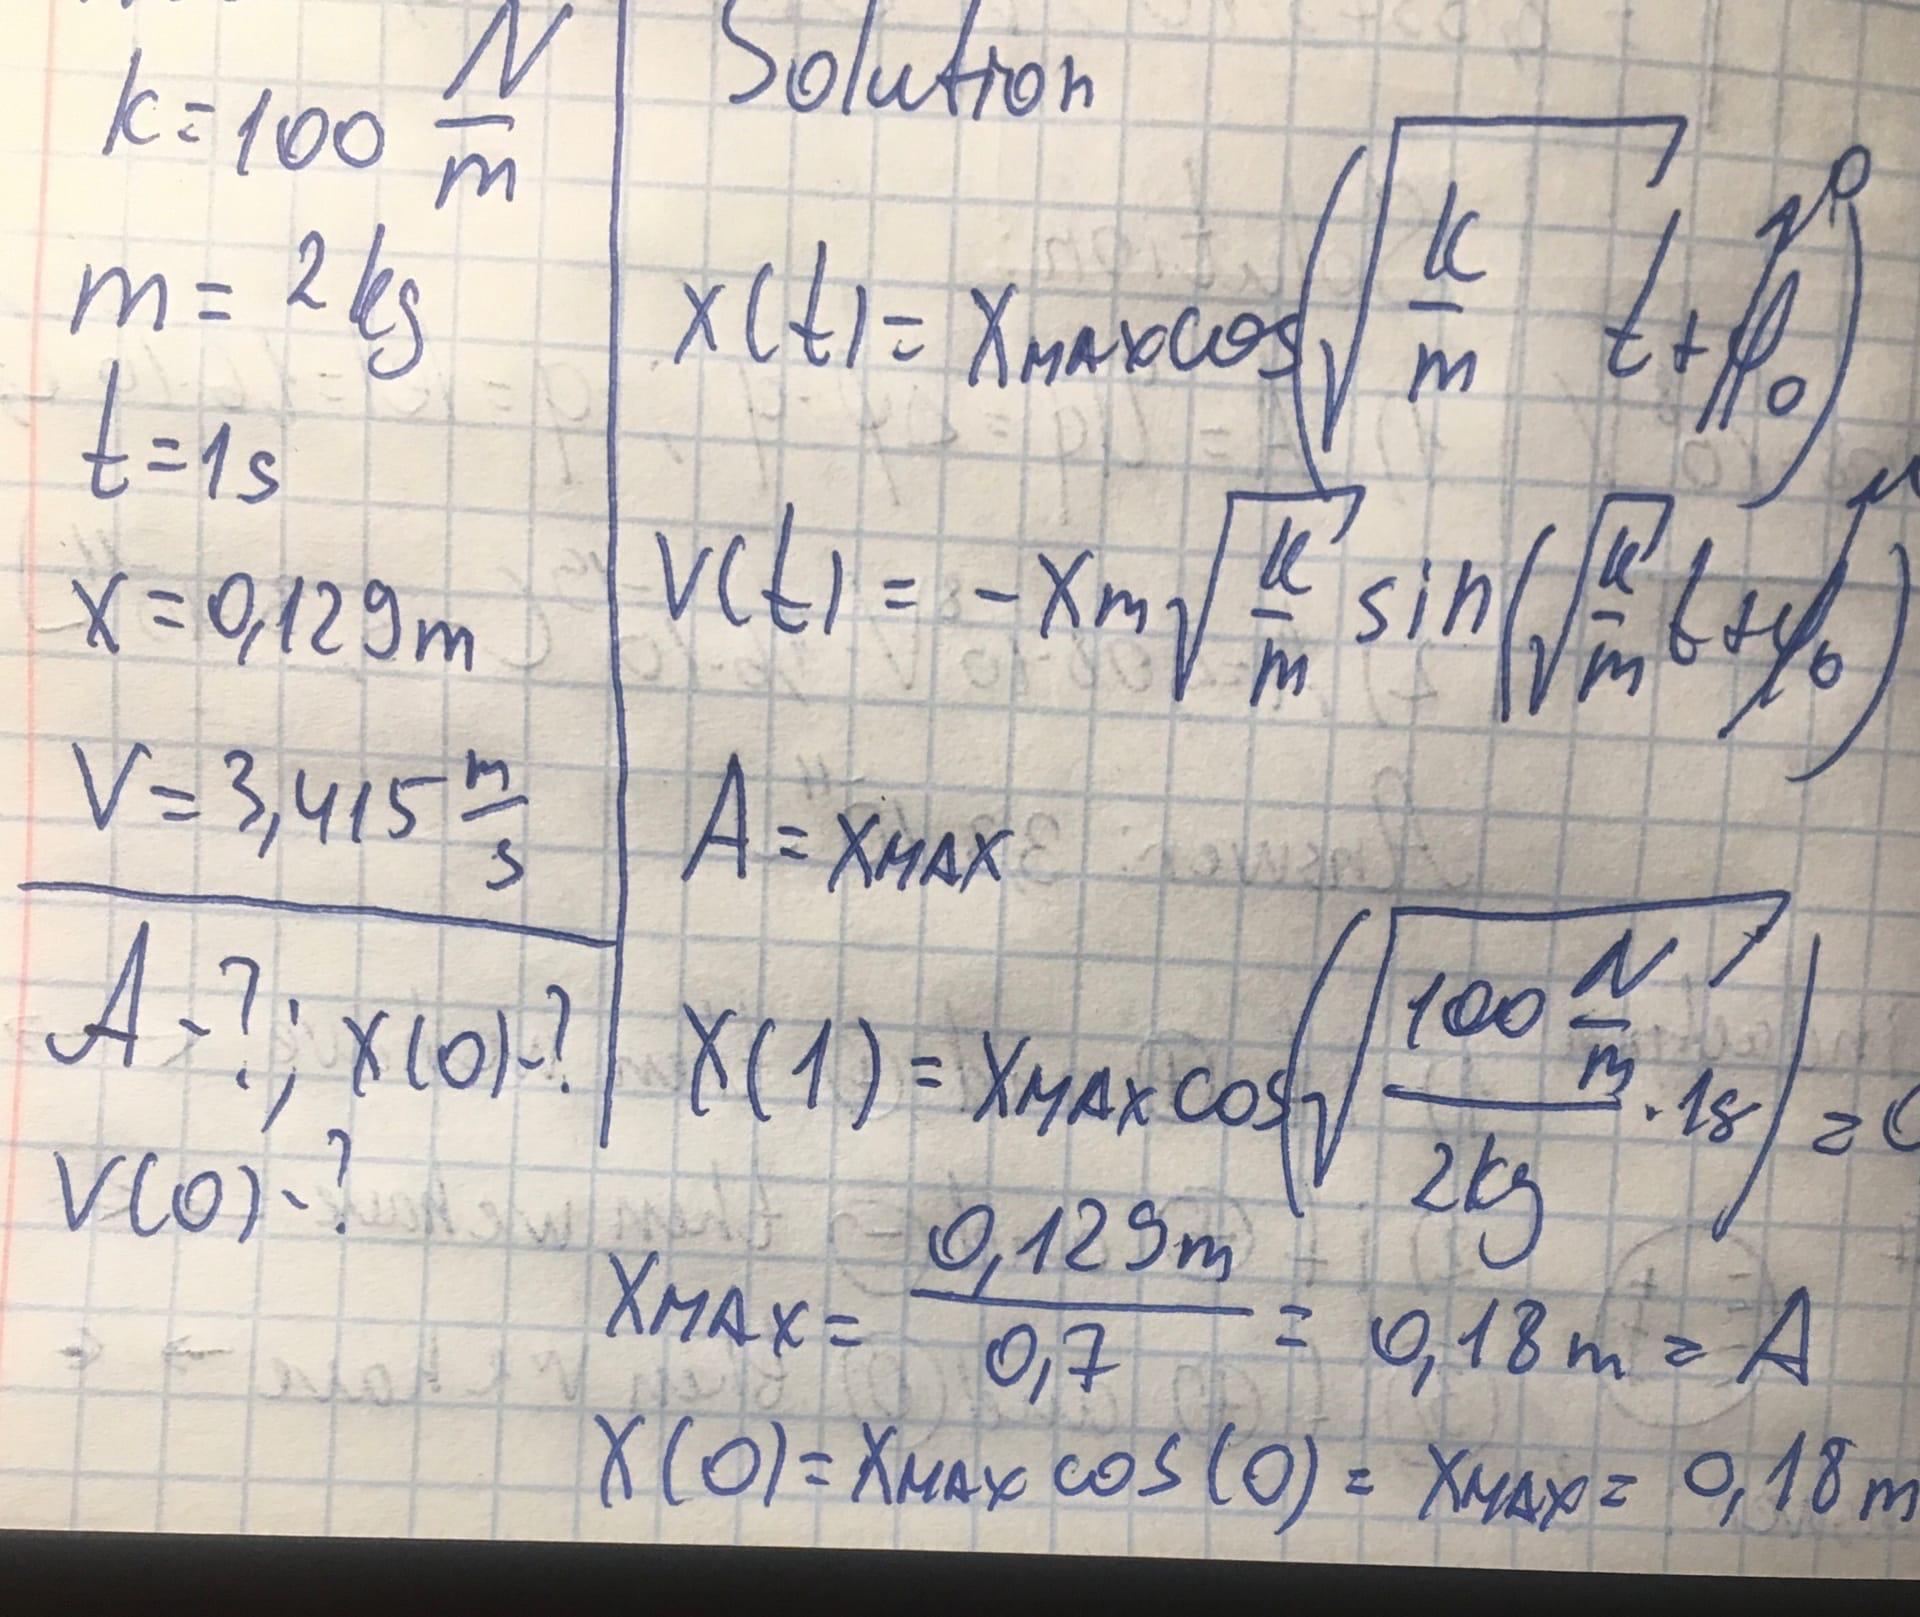 k = 100 N/m
m = 2 kg
t = 1 s
x = 0,129 m
V = 3,415 m/s
A - ?; x(0) - ?
V(0) - ?
Solution
x(t) = xMAX cos(√(k/m) t + φ₀)
V(t) = - xm √(k/m) sin(√(k/m) t + φ₀)
A = xMAX
x(1) = xMAX cos(√(100 N/m / 2 kg) · 1s) =
xMAX = 0,129 m / 0,7 = 0,18 m = A
x(0) = xMAX cos(0) = xMAX = 0,18 m